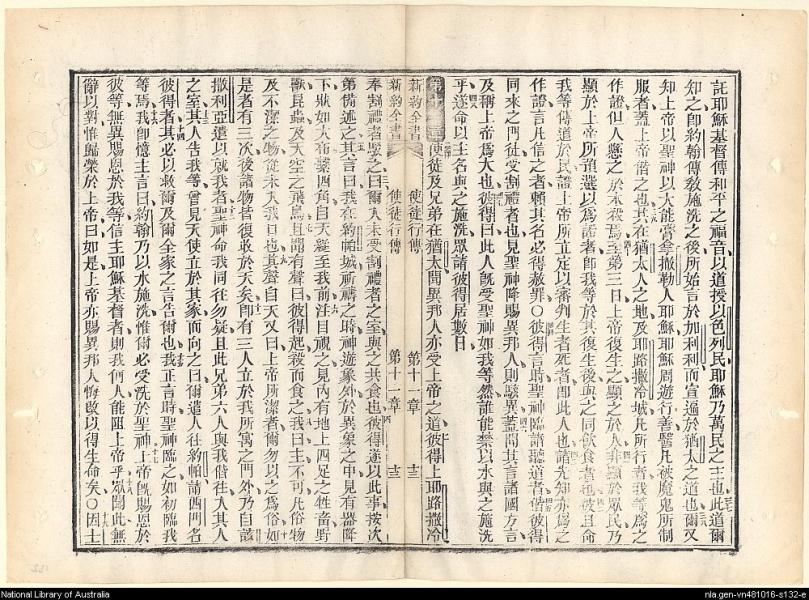 託耶穌基督傳和平之福音以道授以色列民耶穌乃萬民之主也此道爾
知之卽約翰傳敎施洗之後所始言於加利利而宣遍於猶太之道也爾又
知上帝以聖神以大能膏拿撒勒人耶穌耶穌周遊行善醫凡被魔鬼所制
服者蓋上帝偕之也其在猶太人之地及耶路撒冷城凡所行者我等爲之
作證但人懸之於木殺焉至第三日上帝復生之顯之於人非顯於眾民乃
顯於上帝所預選以爲證者卽我等於其復生後與之同飲食者也彼且命
我等傳道於民證上帝所立定以審判生者死者卽此人也諸先知亦爲之
作證言凡信之者賴其名必得赦罪○彼得言時聖神臨諸聽道者偕彼得
同來之門徒受割禮者也見聖神降賜異邦人則駭異蓋聞其言諸國方言
及稱上帝爲大也彼得曰此人旣受聖神如我等然誰能禁以水與之施洗
乎遂命以主名與之施洗眾請彼得居數日
使徒及兄弟在猶太聞異邦人亦受上帝之道彼得上耶路撒冷
新約全書 使徒行傳 第十一章 十三
新約全書 使徒行傳 第十一章 十三
奉割禮者詰之曰爾入未受割禮者之室與之共食也彼得遂以此事按次
第備述之其言曰我在約帕城祈禱之時神遊象外於異象之中見有器降
下狀如大布繫四角自天縋至我前注目視之見內有地上四足之牲畜野
獸昆蟲及天空之飛鳥且聞有聲曰彼得起殺而食之我曰主不可凡俗物
及不潔之物從未入我口也其聲自天又曰上帝所潔者爾勿以之爲俗如
是者有三次後諸物皆復收於天矣卽有三人立於我所寓之門外乃自該
撒利亞遣以就我者聖神命我同往勿疑且此兄弟六人與我偕往入其人
之室其人告我等曾見天使立於其家而向之曰爾遣人往約帕請西門名
彼得者其必以救爾及爾全家之言告爾也我正言時聖神臨之如初臨我
等焉我卽憶主言曰約翰乃以水施洗惟爾必受洗於聖神上帝旣賜恩於
彼等無異賜恩於我等信主耶穌基督者則我何人能阻上帝乎眾聞此無
辭以對惟歸榮於上帝曰如是上帝亦賜異邦人悔改以得生命矣○因士
National Library of Australia
nla.gen-vn481016-s132-e